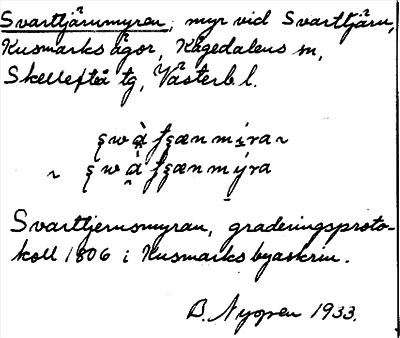 Svarttjärnmyren, myr vid Svarttjärn,
Kusmarks ägor, Kågedalens sn,
Skellefteå tg, Västerb l.
Svarttjernsmyran, graderingsproto-
koll 1806 i Kusmarks byaskrin.
B. Nygren 1933.